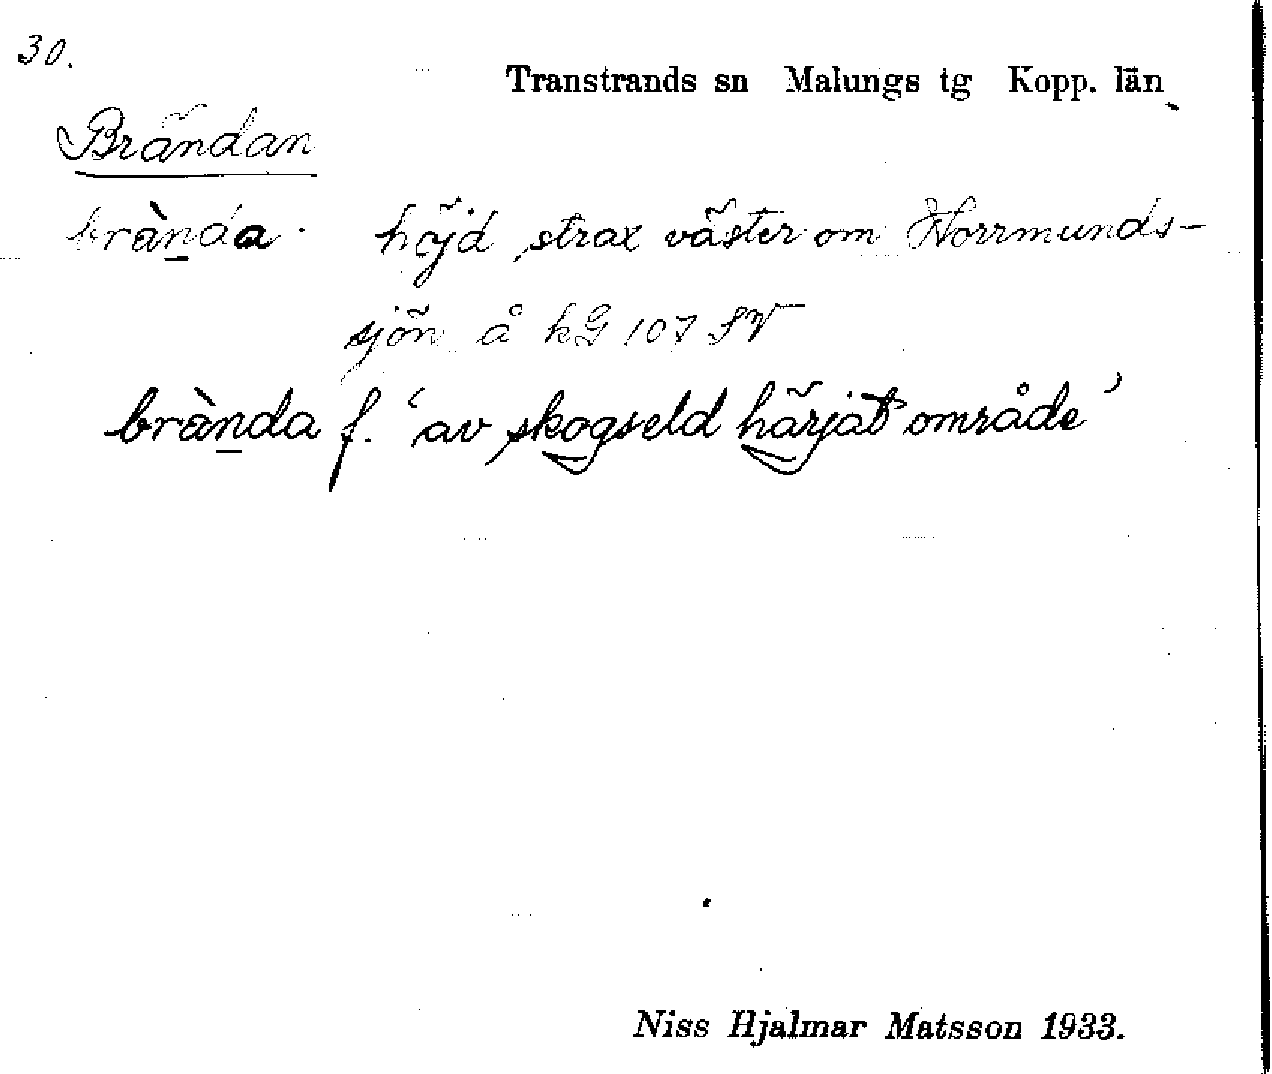 30.
Transtrands sn Malungs tg Kopp. län
Brändan
brànda. höjd strax väster om Horrmunds-
sjön å kG 107 SV
brànda f. ‘av skogseld härjat område’
Niss Hjalmar Matsson 1933.